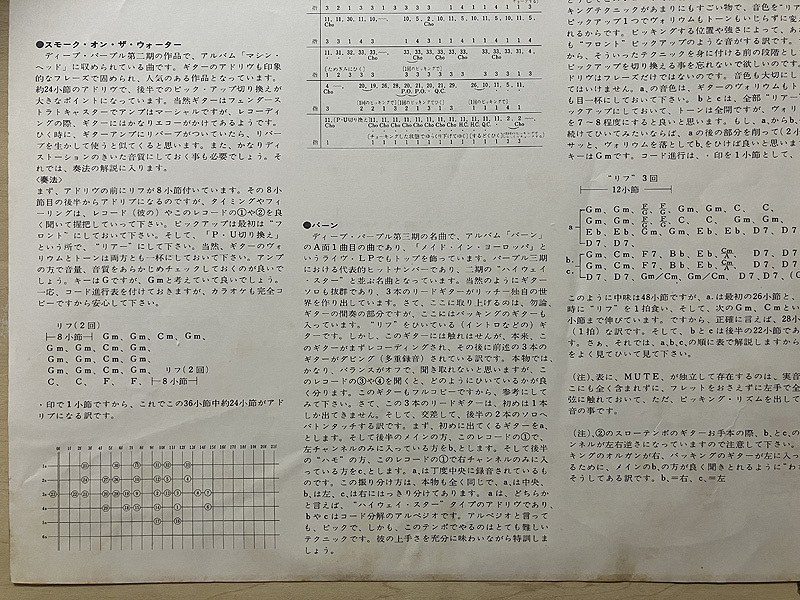 ●スモーク・オン・ザ・ウォーター
ディープ・パープル第二期の作品で、アルバム「マシン・
ヘッド」に収められている曲です。ギターのアドリヴも印象
的なフレーズで固められ、人気のある作品となっています。
約24小節のアドリヴで、後半でのピック・アップ切り換えが
大きなポイントになっています。当然ギターはフェンダース
トラトキャスターでアンプはマーシャルですが、レコーディ
ングの際、ギターにはかなりエコーがかけてあるようです。
ひく時に、ギターアンプにリバーブがついていたら、リバー
ブを生かして使うと似てくると思います。また、かなりディ
ストーションのきいた音質にしておく事も必要でしょう。そ
れでは、奏法の解説に入ります。
〈奏法〉
まず、アドリヴの前にリフが8小節付いています。その8小
節目の後半からアドリブになるのですが、タイミングやフィ
ーリングは、レコード(彼の)やこのレコードの①や②を良
く聞いて握把していって下さい。ピックアップは最初は“フ
ロント”にしておいて下さい。そして、「P・U切り換え」
という所で、“リアー”にして下さい。当然、ギターのヴォ
リュムとトーンは両方とも一杯にしておいて下さい。アンプ
の方で音量、音質をあらかじめチェックしておくのが良いで
しょう。キーはGですが、Gmと考えていて良いでしょう。
一応、コード進行表を付けておきますが、カラオケも完全コ
ピーですから安心して下さい。
リフ(2回)
├─8小節─┤ Gm、Gm、Cm、Gm、
Gm、Gm、Gm、Gm、
Gm、Gm、Cm、Gm、
Gm、Gm、Cm、Gm、 リフ(2回)
C、 C、 F、 F、├─8小節─┤
・印で1小節ですから、これでこの36小節中約24小節がアド
リブになる訳です。
●バーン
ディープ・パープル第三期の名曲で、アルバム「バーン」
のA面1曲目の曲であり、「メイド・イン・ヨーロッパ」と
いうライヴ・LPでもトップを飾っています。パープル三期
における代表的ヒットナンバーであり、二期の“ハイウェイ
・スター”と並ぶ名曲となっています。当然のようにギター
ソロも抜群であり、3本のリードギターがリッチー独自の世
界を作り出しています。さて、ここに取り上げるのは、勿論、
ギターの間奏の部分ですが、ここにはバッキングのギターも
入っています。“リフ”をひいている(イントロなどの)ギ
ターです。しかし、このギターには触れはせんが、本来、こ
のギターがまずレコーディングされ、その後に前述の3本の
ギターがダビング(多重録音)されている訳です。本物では、
かなり、バランスがオフで、聞き取れないと思いますが、こ
のレコードの③や④を聞くと、どのようにひいているかが良
く分ります。このギターもフルコピーですから、参考にして
みて下さい。さて、この3本のリードギターは、初めは1本
しか出てきません。そして、交差して、後半の2本のソロへ
バトンタッチする訳です。まず、初めに出てくるギターをa、
とします。そして後半のメインの方、このレコードの①で、
左チャンネルのみに入っている方をb、とします。そして後半
の“ハモ”の方、このレコードの①で右チャンネルのみに入
っている方をc、とします。a、は丁度中央に録音されているも
のです。この振り分け方は、本物も全く同じで、a、は中央、
b、は左、c、は右にはっきり分けてあります。aは、どちらか
と言えば、“ハイウェイ・スター”タイプのアドリヴであり、
bやcはコード分解のアルペジオです。アルペジオと言って
も、ピックで、しかも、このテンポでやるのはとても難しい
テクニックです。彼の上手さを充分に味わいながら特訓しま
しょう。
キングテクニックがあまりにもすごい物で、音色を“リア
ピックアップ1つでヴォリュムもトーンもいじらずに変え
れるからです。ピッキングする位置や強さによって、あた
も“フロント”ピックアップのような音がする訳です。
から、そういったテクニックを身に付ける前の段階として
ピックアップを切り換える事を忘れないで欲しいのです。
ドリヴはフレーズだけではないのです。音色も大切にし
てはいけません。a、の音色は、ギターのヴォリュムもト
も目一杯にしておいて下さい。bとcは、全部“リアー”
ックアップにしておいて、トーンは全開ですが、ヴォリ
を7〜8程度にすると良いと思います。もし、a、からb、
続けてひいてみたいならば、aの後の部分を削って(2小
サッと、ヴォリュムを落としてb、をひけば良いと思います
キーはGmです。コード進行は、・印を1小節として、
“リフ”3回
├─12小節─┤
a
b、
c、
このように中味は48小節ですが、a、は最初の26小節と、
時に“リフ”を1拍食い、そして、次のGm、Cmとい
小節まで伸びています。ですから、正確に言えば、28小
(1拍)な訳です。そして、bとcは後半の22小節であ
す。さぁ、それでは、a、b、cの順に表で解説しますから
をよく見ていて見て下さい。
(注)、表に、MUTE、が独立して存在するのは、実音
こにも全く含まれずに、フレットをおさえずに左手で全
弦に触れておいて、ただ、ピッキング・リズムを出して
音の事です。
(注)、②のスローテンポのギターお手本の際、b、とc、の
ンネルが左右逆さになっていますので注意して下さい。
キングのオルガンが右、バッキングのギターが左に入っ
るために、メインのb、の方が良く聞きとれるように“わざ
そうしてある訳です。b、＝右、c、＝左